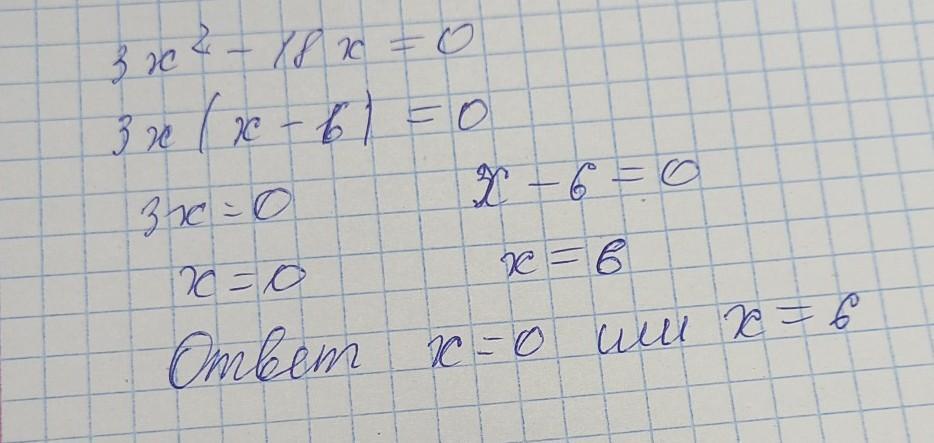 3x² - 18x = 0
3x(x - 6) = 0
3x = 0 x - 6 = 0
x = 0 x = 6
Ответ x = 0 или x = 6